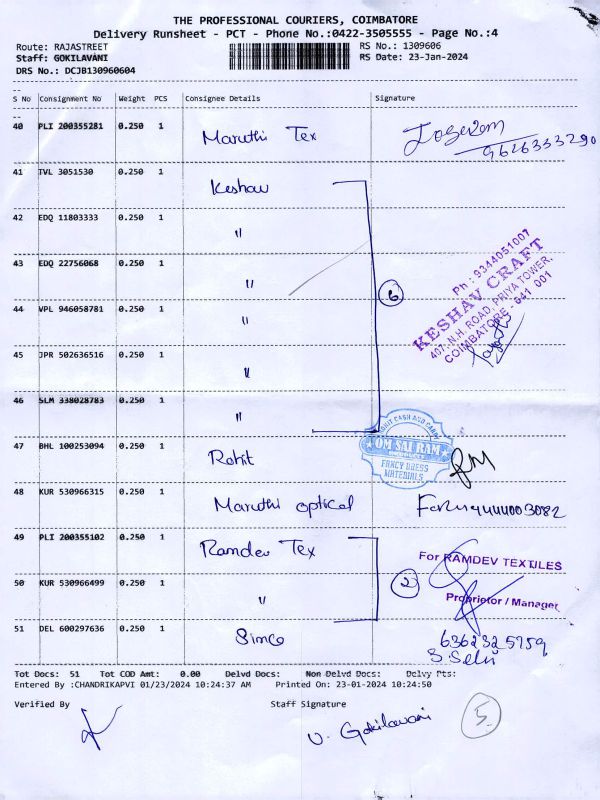 THE PROFESSIONAL COURIERS, COIMBATORE
Delivery Runsheet - PCT - Phone No.:0422-3505555 - Page No.:4
Route: RAJASTREET RS No.: 1309606
Staff: GOKILAVANI RS Date: 23-Jan-2024
DRS No.: DCJB130960604
S No Consignment No Weight PCS Consignee Details Signature
40 PLI 200355281 0.250 1 Maruthi Tex
9626333290
41 TVL 3051530 0.250 1 Keshav
42 EDQ 11803333 0.250 1 "
43 EDQ 22756068 0.250 1 "
6
Ph : 9344051007
KESHAV CRAFT
407, N.H. ROAD, PRIYA TOWER,
COIMBATORE - 641 001
44 VPL 946058781 0.250 1 "
45 JPR 502636516 0.250 1 "
46 SLM 338028783 0.250 1 "
ROHIT CASH AND CARRY
OM SAI RAM
FANCY DRESS
MATERIALS
47 BHL 100253094 0.250 1 Rohit
48 KUR 530966315 0.250 1 Maruthi optical
49 PLI 200355102 0.250 1 Ramdev Tex
For RAMDEV TEXTILES
2
50 KUR 530966499 0.250 1 "
Proprietor / Manager
51 DEL 600297636 0.250 1 Simco
Tot Docs: 51 Tot COD Amt: 0.00 Delvd Docs: Non Delvd Docs: Delvy Pts:
Entered By :CHANDRIKAPVI 01/23/2024 10:24:37 AM Printed On: 23-01-2024 10:24:50
Verified By Staff Signature
V. Gokilavani
5